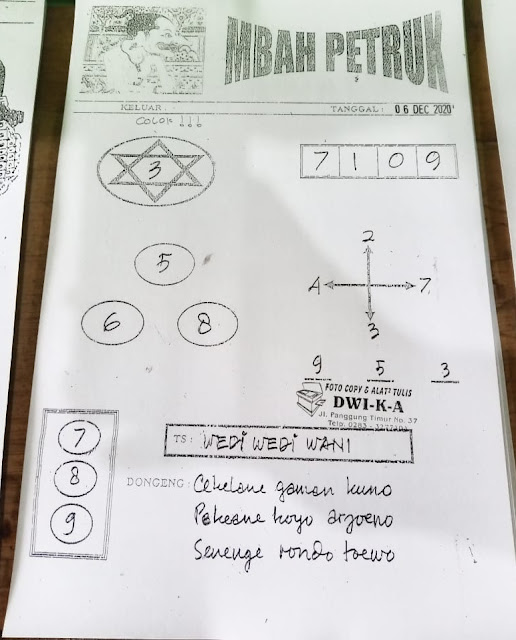 MBAH PETRUK
KELUAR :
TANGGAL : 06 DEC 2020
COLOK !!!
3
7 1 0 9
5
6 8
2
A 7
3
9 5 3
FOTO COPY & ALAT² TULIS
DWI-K-A
Jl. Panggung Timur No. 37
Telp. 0283 -
7
8
9
TS : WEDI WEDI WANI
DONGENG : Cekelane gaman kuno
Pakeane koyo arjoeno
Senenge rondo toewo